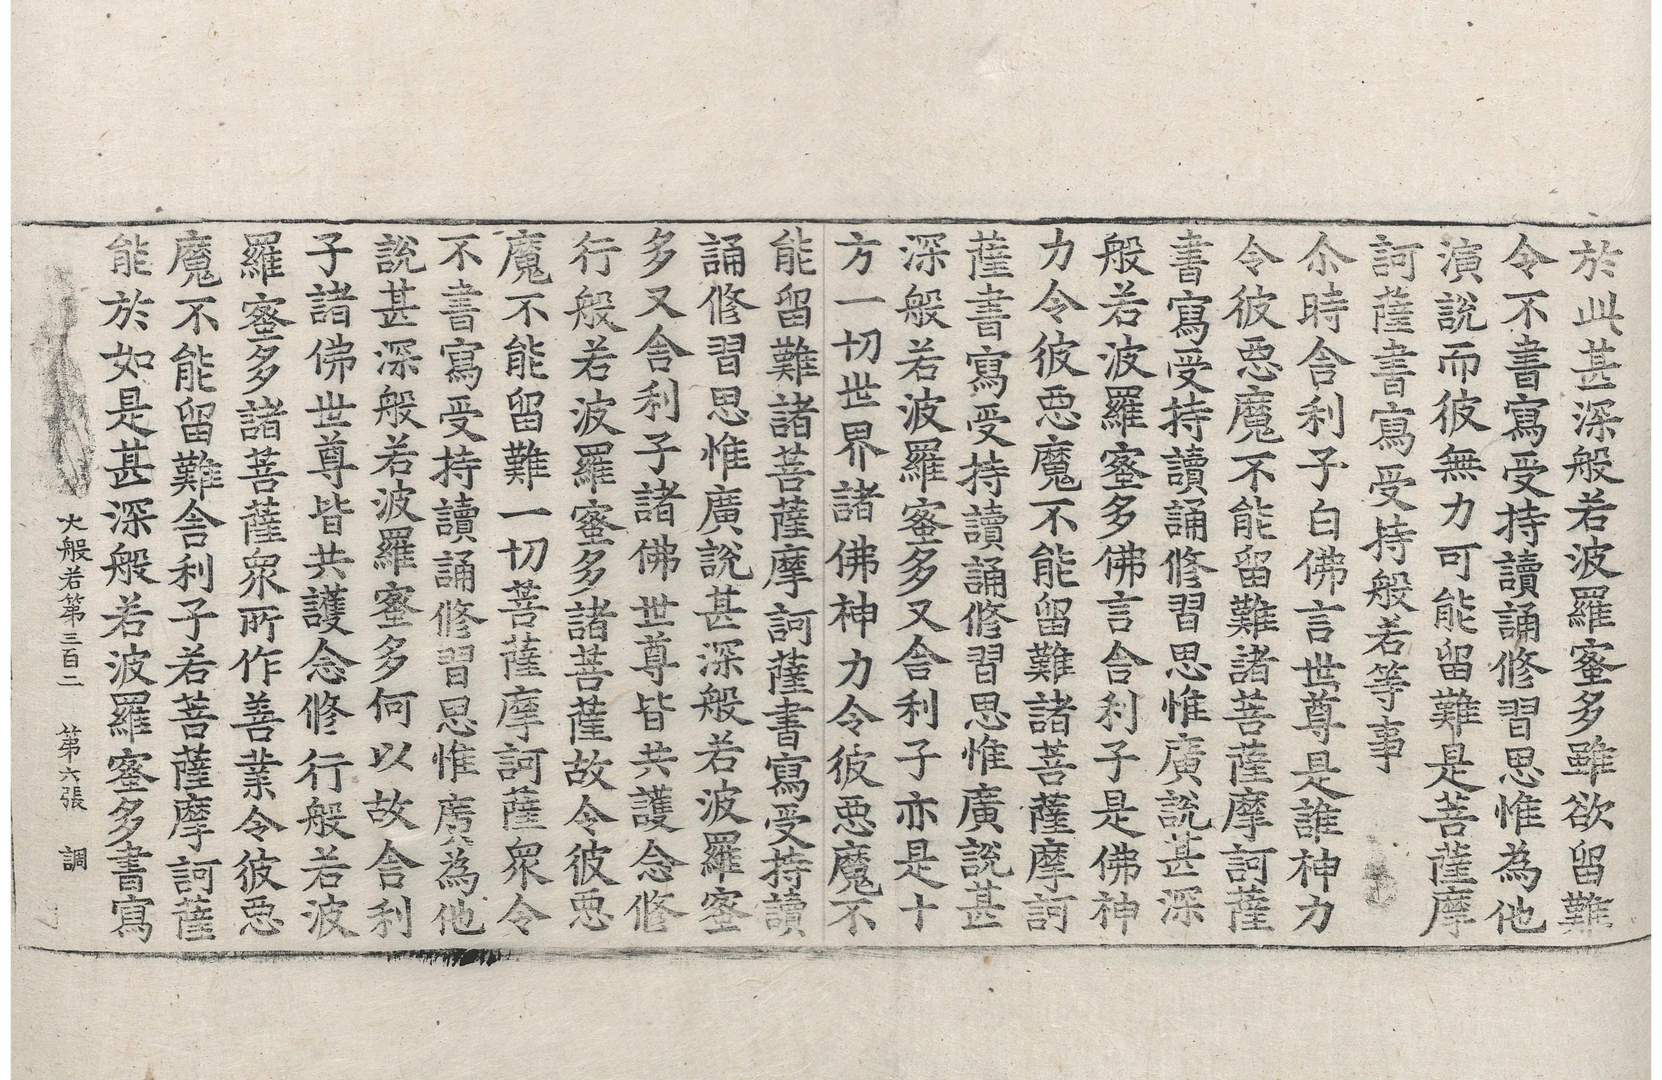 於此甚深般若波羅蜜多雖欲留難
令不書寫受持讀誦修習思惟為他
演說而彼無力可能留難是菩薩摩
訶薩書寫受持般若等事
尒時舍利子白佛言世尊是誰神力
令彼惡魔不能留難諸菩薩摩訶薩
書寫受持讀誦修習思惟廣說甚深
般若波羅蜜多佛言舍利子是佛神
力令彼惡魔不能留難諸菩薩摩訶
薩書寫受持讀誦修習思惟廣說甚
深般若波羅蜜多又舍利子亦是十
方一切世界諸佛神力令彼惡魔不
能留難諸菩薩摩訶薩書寫受持讀
誦修習思惟廣說甚深般若波羅蜜
多又舍利子諸佛世尊皆共護念修
行般若波羅蜜多諸菩薩故令彼惡
魔不能留難一切菩薩摩訶薩衆令
不書寫受持讀誦修習思惟廣為他
說甚深般若波羅蜜多何以故舍利
子諸佛世尊皆共護念修行般若波
羅蜜多諸菩薩衆所作善業令彼惡
魔不能留難舍利子若菩薩摩訶薩
能於如是甚深般若波羅蜜多書寫
大般若第三百二 第六張 調